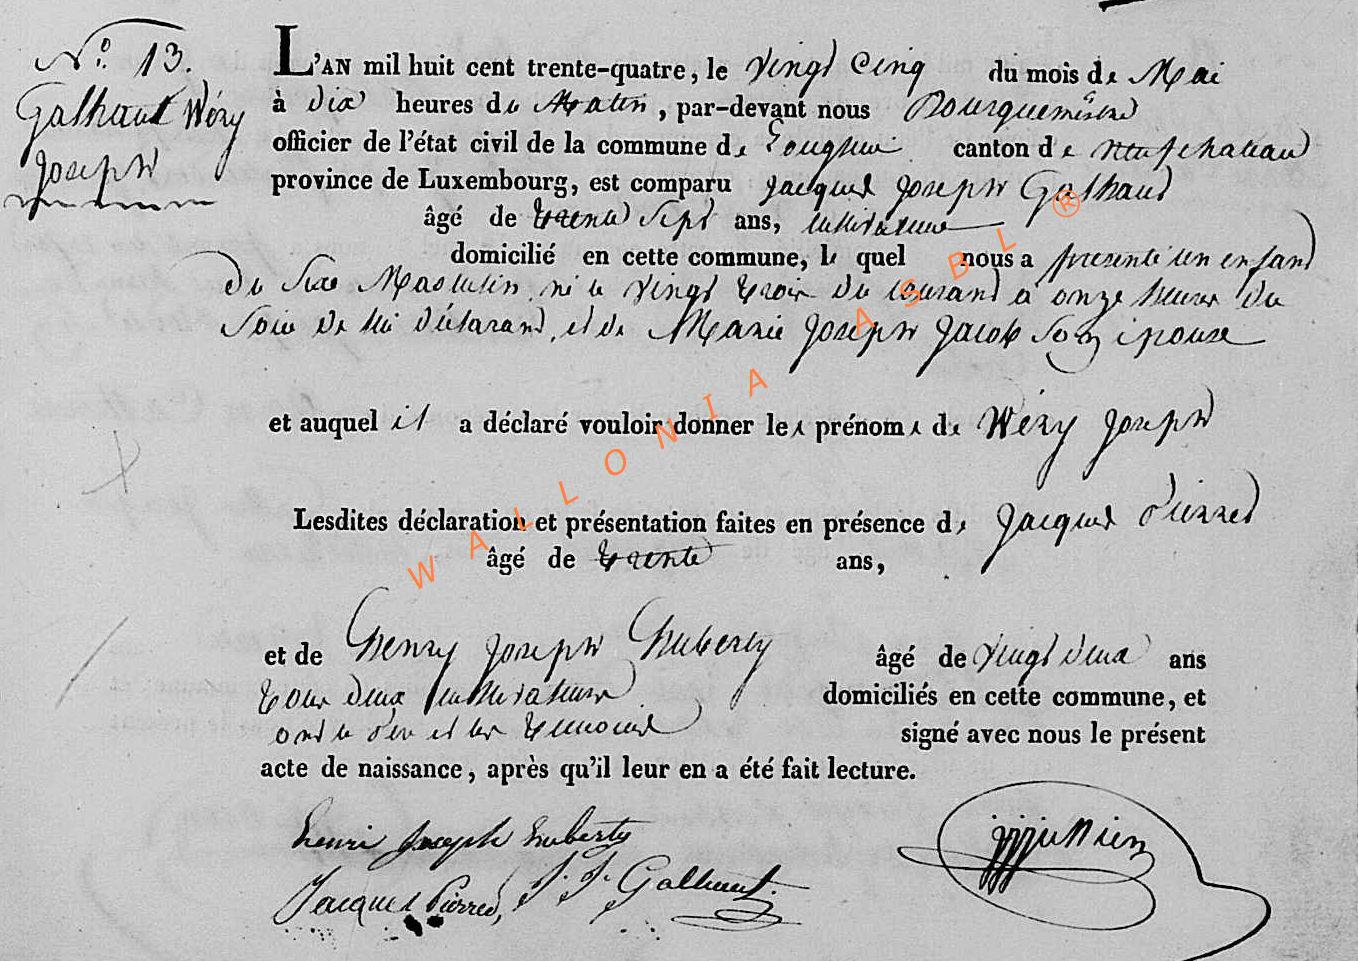 N.° 13.
Galhaut Wéry
Joseph
L'AN mil huit cent trente-quatre, le vingt cinq du mois de Mai
à dix heures du Matin, par-devant nous Bourguemestre
officier de l'état civil de la commune de canton de neufchateau
province de Luxembourg, est comparu Jacques Joseph Galhaut
âgé de trente sept ans, cultivateur
domicilié en cette commune, le quel nous a presenté un enfant
du sexe Masculin, né le vingt trois du courant à onze heures du
soir de lui déclarant, et de Marie Joseph Jacob son épouse
et auquel il a déclaré vouloir donner les prénoms de Wéry Joseph
Lesdites déclaration et présentation faites en présence de Jacques Pierret
âgé de trente ans,
et de Henry Joseph Huberty âgé de vingt deux ans
tous deux cultivateurs domiciliés en cette commune, et
ont le père et les temoins signé avec nous le présent
acte de naissance, après qu'il leur en a été fait lecture.
henri Joseph huberty
Jacques Pierret, J. J. Galhaut.
WALLONIA ASBL ®